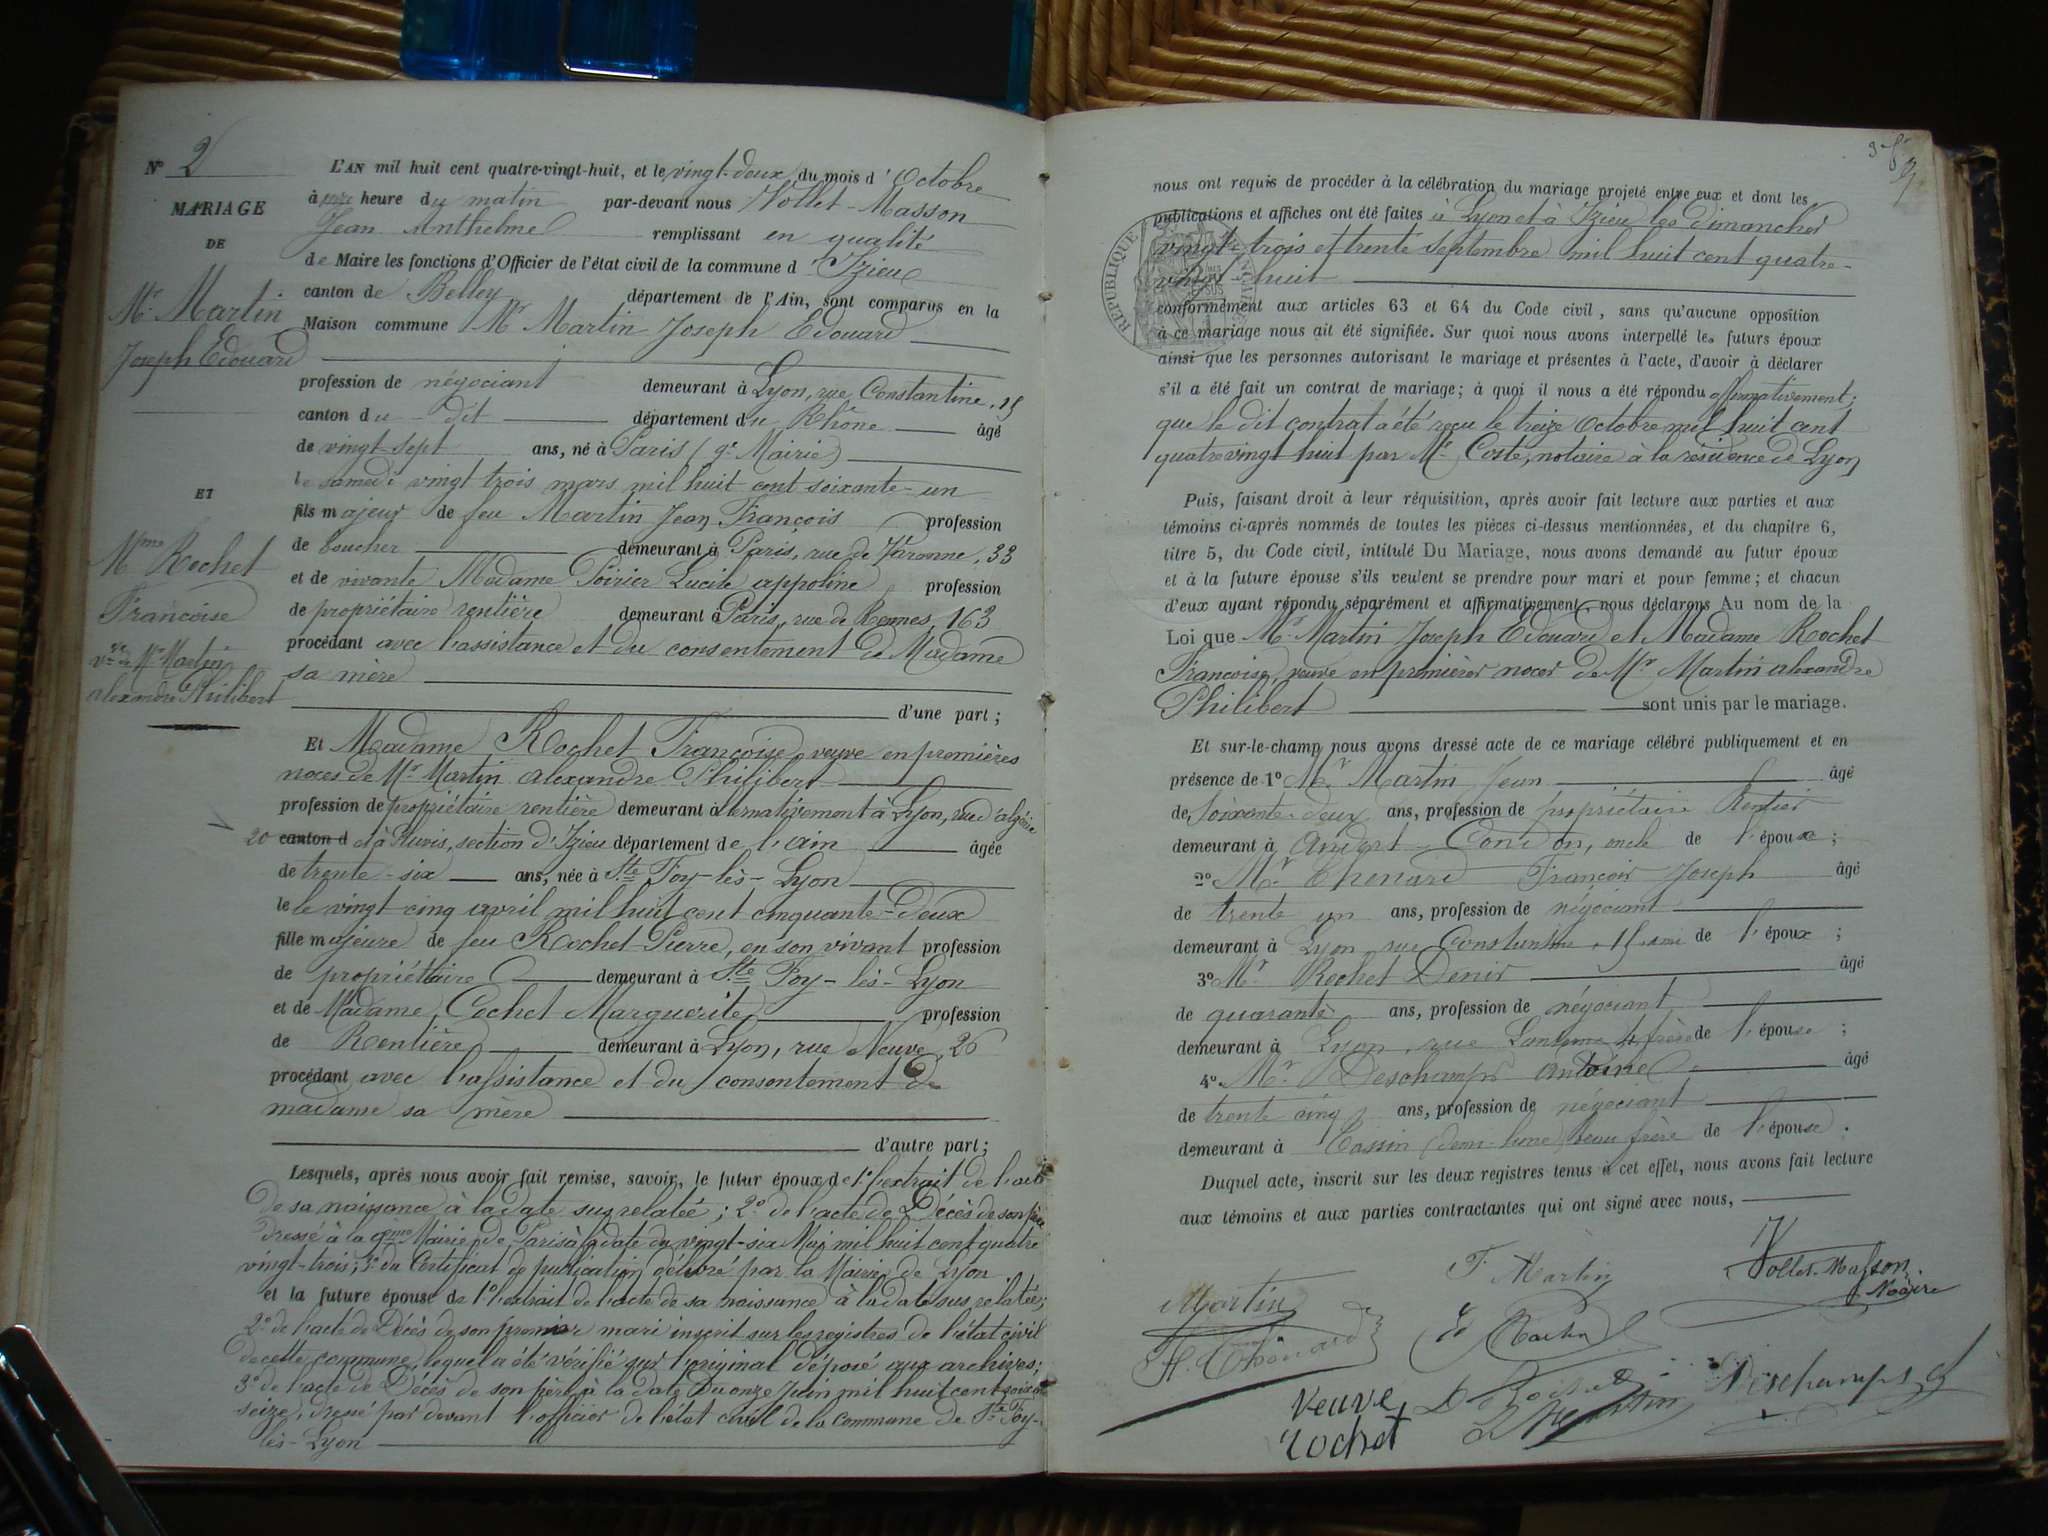 N° 2
MARIAGE
DE
Mr. Martin
Joseph Edouard
ET
Mme Rochet
Françoise
vve de Mr Martin
alexandre Philibert
L'AN mil huit cent quatre-vingt-huit, et le vingt-deux du mois d'Octobre
à heure du matin par-devant nous Vollet-Masson
Jean Anthelme remplissant en qualité
de Maire les fonctions d'Officier de l'état civil de la commune d'Izieu
canton de Belley département de l'Ain, sont comparus en la
Maison commune Mr Martin Joseph Edouard
profession de négociant demeurant à Lyon, rue Constantine, 15
canton du dit département du Rhône âgé
de vingt-sept ans, né à Paris (9e Mairie)
le samedi vingt trois mars mil huit cent soixante-un
fils majeur de feu Martin Jean François profession
de boucher demeurant à Paris, rue de Varenne, 33
et de vivante Madame Poirier Lucile appoline profession
de propriétaire rentière demeurant à Paris, rue de Rennes, 163
procédant avec l'assistance et du consentement de Madame
sa mère
d'une part;
Et Madame Rochet Françoise, veuve en premières
noces de Mr Martin alexandre Philibert
profession de propriétaire rentière demeurant alternativement à Lyon, rue d'algérie
20 canton d et à Ruvis, section d'Izieu département de l'ain âgée
de trente-six ans, née à Ste Foy-lès-Lyon
le le vingt cinq avril mil huit cent cinquante-deux
fille majeure de feu Rochet Pierre, en son vivant profession
de propriétaire demeurant à Ste Foy-lès-Lyon
et de Madame Cochet Marguerite profession
de Rentière demeurant à Lyon, rue Neuve, 26
procédant avec l'assistance et du consentement de
madame sa mère
d'autre part;
Lesquels, après nous avoir fait remise, savoir, le futur époux de 1° l'extrait de l'acte
de sa naissance à la date susrelatée; 2° de l'acte de Décès de son père
dressé à la Mairie de Paris à la date du vingt-six Mai mil huit cent quatre
vingt-trois; 3° du Certificat de publication délivré par la Mairie de Lyon
et la future épouse de 1° l'extrait de l'acte de sa naissance à la date susrelatée;
2° de l'acte de Décès de son premier mari inscrit sur les registres de l'état civil
de cette commune, lequel a été vérifié sur l'original déposé aux archives;
3° de l'acte de Décès de son père à la date du onze Juin mil huit cent soixante
seize, dressé par devant l'officier de l'état civil de la commune de Ste Foy-
lès-Lyon
nous ont requis de procéder à la célébration du mariage projeté entre eux et dont les
publications et affiches ont été faites à Lyon et à Izieu les dimanches
vingt trois et trente Septembre mil huit cent quatre-
vingt-huit
RÉPUBLIQUE
conformément aux articles 63 et 64 du Code civil, sans qu'aucune opposition
à ce mariage nous ait été signifiée. Sur quoi nous avons interpellé les futurs époux
ainsi que les personnes autorisant le mariage et présentes à l'acte, d'avoir à déclarer
s'il a été fait un contrat de mariage; à quoi il nous a été répondu affirmativement;
que le dit contrat a été reçu le treize Octobre mil huit cent
quatre vingt huit par Me Coste, notaire à la résidence de Lyon
Puis, faisant droit à leur réquisition, après avoir fait lecture aux parties et aux
témoins ci-après nommés de toutes les pièces ci-dessus mentionnées, et du chapitre 6,
titre 5, du Code civil, intitulé Du Mariage, nous avons demandé au futur époux
et à la future épouse s'ils veulent se prendre pour mari et pour femme; et chacun
d'eux ayant répondu séparément et affirmativement, nous déclarons Au nom de la
Loi que Mr Martin Joseph Edouard et Madame Rochet
Françoise, veuve en premières noces de Mr Martin alexandre
Philibert sont unis par le mariage.
Et sur-le-champ nous avons dressé acte de ce mariage célébré publiquement et en
présence de 1° Mr Martin Jean âgé
de Soixante-deux ans, profession de propriétaire Rentier
demeurant à Andert-Condon, oncle de l'épouse;
2° Mr Thenard François Joseph âgé
de trente un ans, profession de négociant
demeurant à Lyon rue Constantine, 15 ami de l'époux;
3° Mr Rochet Denis âgé
de quarante ans, profession de négociant
demeurant à Lyon, rue frère de l'épouse;
4° Mr Deschamps Antoine âgé
de trente cinq ans, profession de négociant
demeurant à Tassin (demi-lune) beau frère de l'épouse.
Duquel acte, inscrit sur les deux registres tenus à cet effet, nous avons fait lecture
aux témoins et aux parties contractantes qui ont signé avec nous,
Martin
F. Martin
Vollet-Masson
Maire
Thenard
Ed Martin
Veuve
rochet
D Rochet
Martin
Deschamps